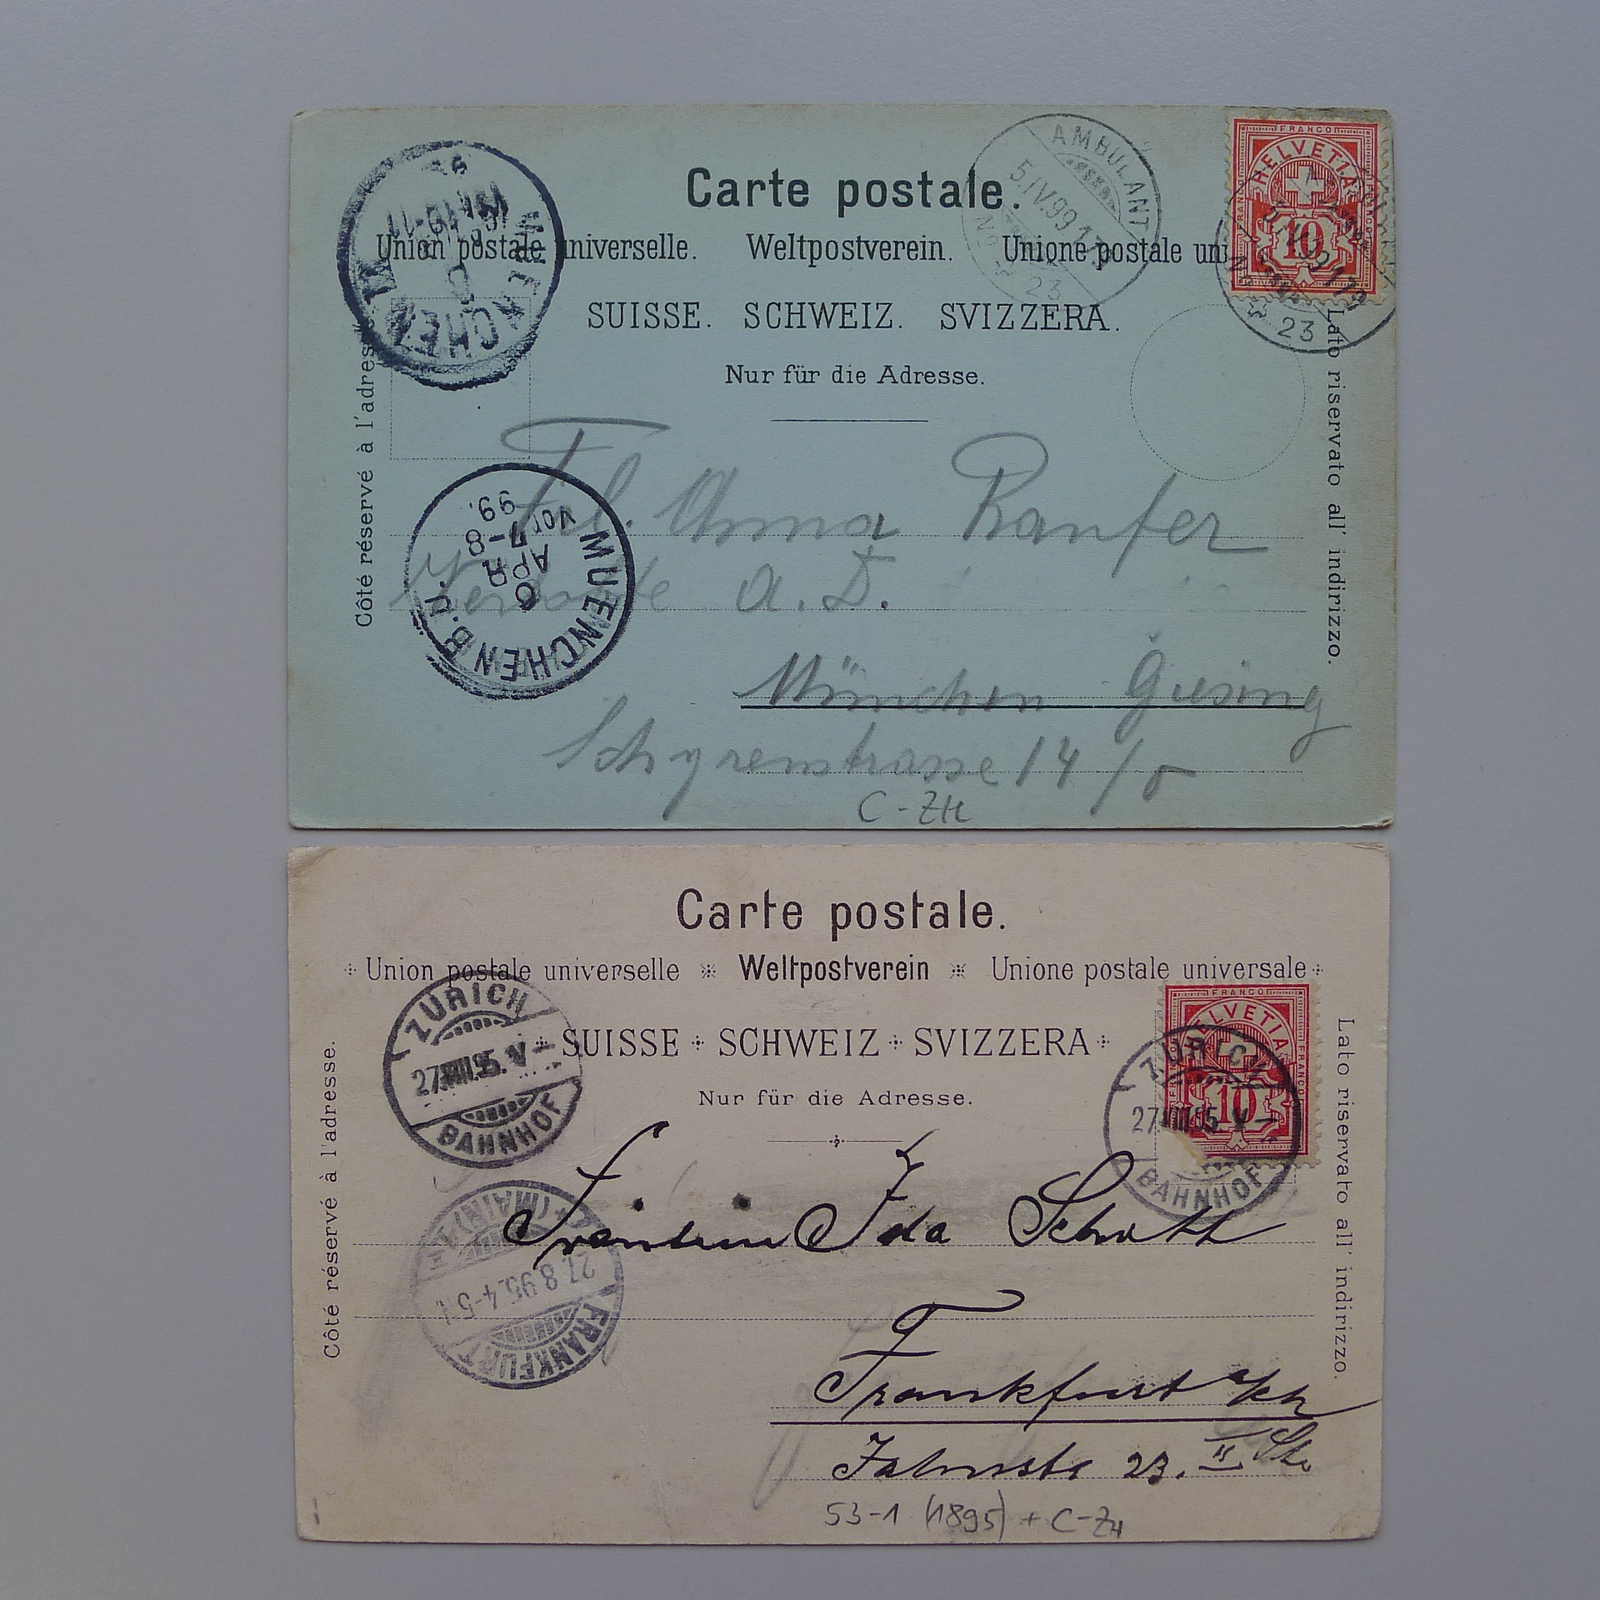 Carte postale.
Union postale universelle. Weltpostverein. Unione postale uni
SUISSE. SCHWEIZ. SVIZZERA.
Nur für die Adresse.
Côté réservé à l'adres
Lato riservato all' indirizzo.
AMBULANT
5.IV.99.17
No 23
FRANCO
HELVETIA
10
No 23
MUENCHEN
MUENCHEN B.U.
6
APR
Vor 7-8
99.
Frl. Anna Ranfer
a. D.
München Giesing
Schyrenstrasse 14/0
C-ZH
Carte postale.
Union postale universelle Weltpostverein Unione postale universale
SUISSE SCHWEIZ SVIZZERA
Nur für die Adresse.
Côté réservé à l'adresse.
Lato riservato all' indirizzo.
ZÜRICH
27.VIII.95.V-
BAHNHOF
FRANCO
HELVETIA
10
ZÜRICH
27.VIII.95.V-
BAHNHOF
FRANKFURT (MAIN) 1
27.8.95.4-5N.
Fräulein Ida Schott
Frankfurt a/M
Jahnstr 23. II Stk
53-1 (1895) + C-ZH